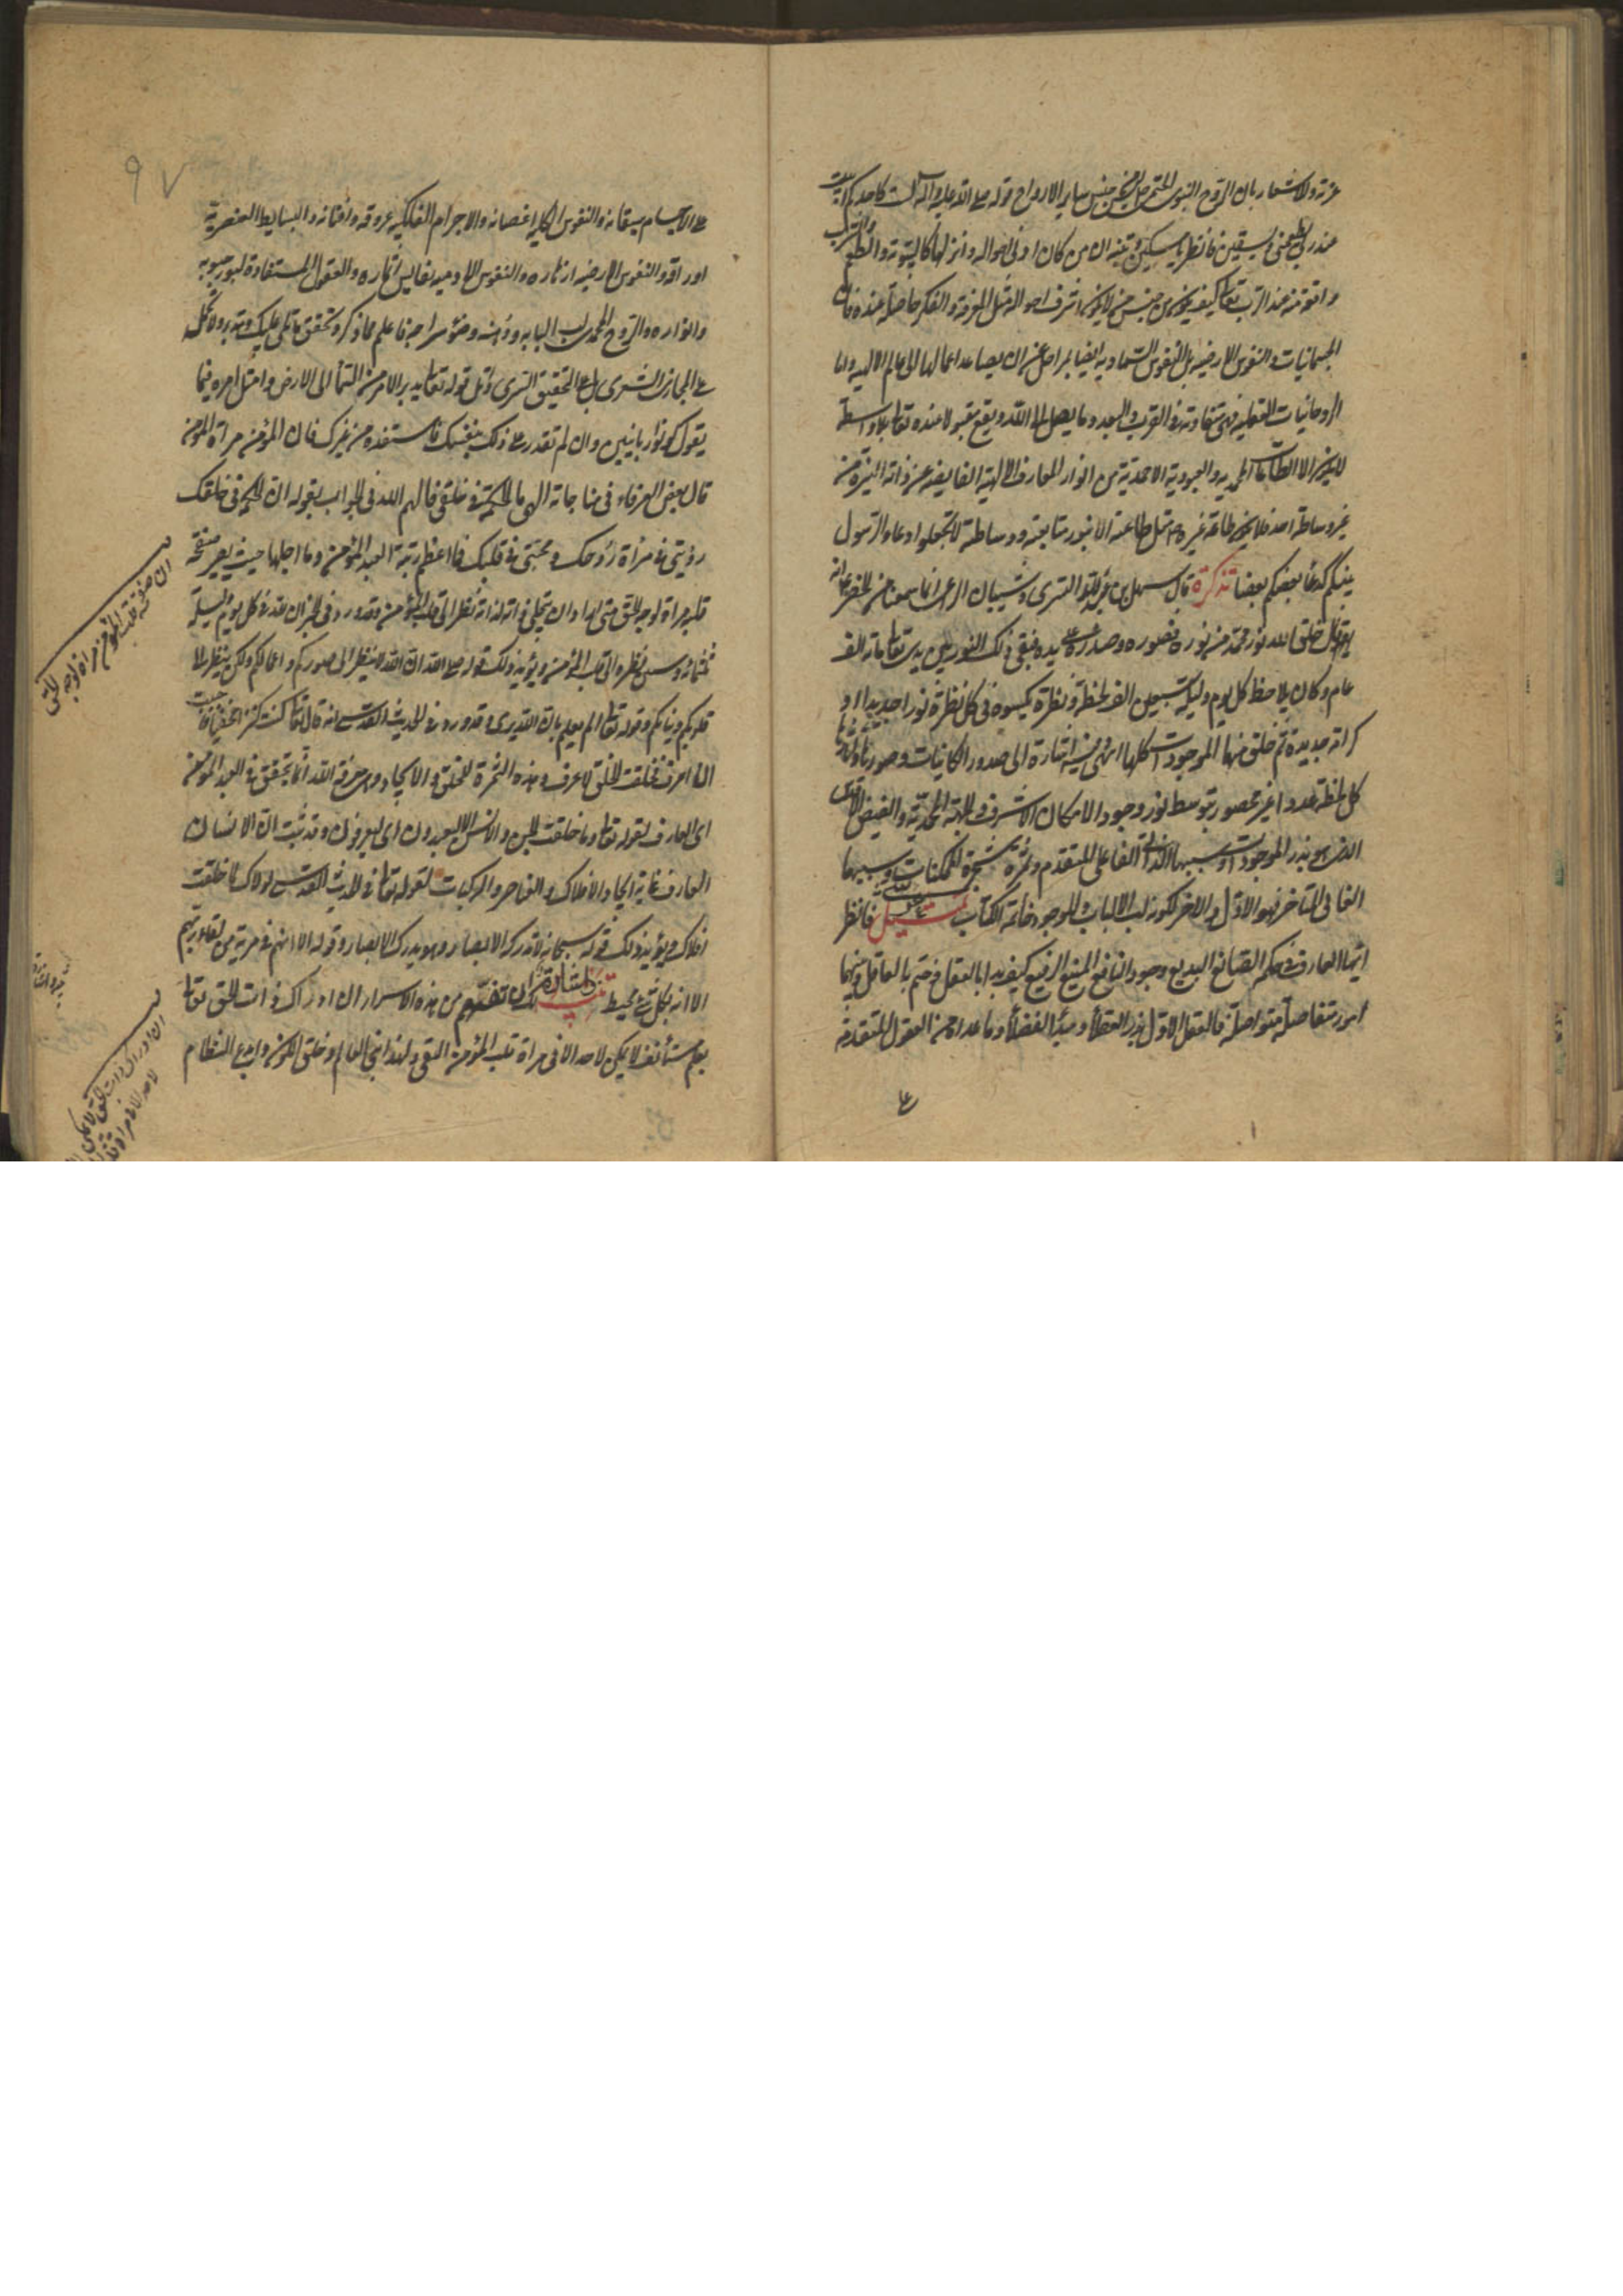 عزته وللاشعار بان الروح النبوى الختمى ليس من جنس ساير الارواح قوله صلى الله عليه وآله لست كاحدكم ابيت
عند ربى يطعمنى ويسقينى فانظر يا مسكين وتنبه ان من كان ادنى احواله وانزلها كالبيتوتة والطعم والشرب
واقعة منه عند الرب تعالى كيف يكون من جنس من لا يكون اشرف احواله مثل المعرفة والفكر حاصلة عنده فان
الجسمانيات والنفوس الارضيه بل النفوس السماوية ايضا بمراحل عن ان يصاعد اعمالها الى عالم الالهيه واما
الروحانيات العقليه فهى متفاوتة فى القرب والبعد وما يصل الى الله ويقع مقبولا عنده تعالى بلا واسطة
لا يكون الا الطاعات المحمديه والعبودية الاحمدية من انوار المعارف الالهية الفايضه عن ذاته النيرة من
غير وساطة احد فلا يكون طاعة غيره مثل طاعته الا بنور متابعته ووساطته لا تجعلوا دعاء الرسول
بينكم كدعاء بعضكم بعضا تذكرة قال سهل بن عبد الله التسترى وشيبان الراعى انا سمعنا من الخضر انه
يقول خلق الله نور محمد من نوره فصوره وصدره على يده فبقى ذلك النور بين يدى تعالى مائة الف
عام وكان يلاحظ كل يوم وليلة سبعين الف لحظة ونظرة يكسوه فى كل نظرة نورا جديدا و
كرامة جديدة ثم خلق منها الموجودات كلها انتهى وفيه اشارة الى صدور الكاينات وصورتها
كل لحظة عددا غير محصور بتوسط نور وجود الامكان الاشرف والجهة المحمدية والفيض الاقدس
الذى هو بذر الموجودات وسببها الذاتى الفاعلى المتقدم وثمرة شجرة الممكنات وسببها
الغائى المتاخر فهو الاول والاخر لكونه لب الالباب والوجود خاتمة الكتاب تمثيل فانظر
ايها العارف فى حكم الصانع البديع وجود النافع المنيع الرفيع كيف بدا بالعقل وختم بالعاقل وبينهما
امور متفاصلة متواصلة فالعقل الاول بذر العقلاء ومبدأ الفضلاء وما عداه من العقول المتقدمة
على
٩٧
على الاجسام سيقانه والنفوس الكليه اغصانه والاجرام الفلكيه عروقه وافنانه والبسايط العنصرية
اوراقه والنفوس الارضيه ازهاره والنفوس الادميه نفايس اثماره والعقول المستفادة لبوب حبوبه
وانواره والروح المحمدى لب البابه ودهنه وضوء سراجه فاعلم مما ذكر وتحقق ما تلى عليك وتدبر ولا تحمله
على المجاز الشعرى بل على التحقيق السرى واتل قوله تعالى يدبر الامر من السماء الى الارض وامتثل امره فيما
يقول كونوا ربانيين وان لم تقدر على ذلك بنفسك فاستفده من غيرك فان المؤمن مرآة المؤمن
قال بعض العرفاء فى مناجاته الهى ما الحكمة فى خلقى فالهم الله فى الجواب بقوله ان الحكمة فى خلقك
رؤيتى فى مرآة روحك ومحبتى فى قلبك فما اعظم رتبة العبد المؤمن وما اجلها حيث يصير صفحة
قلبه مرآة لوجه الحق متى اراد ان يتجلى ذاته لذاته نظر الى قلب المؤمن وقد ورد فى الخبر ان لله فى كل يوم وليلة
ثلثمائة وستين نظرة الى قلب المؤمن ويؤيد ذلك قوله صلى الله ان الله لا ينظر الى صوركم واعمالكم ولكن ينظر الى
قلوبكم ونياتكم وقوله تعالى الم يعلم بان الله يرى وقد ورد فى الحديث القدسى انه قال تعالى كنت كنزا مخفيا فاحببت
ان اعرف فخلقت الخلق لاعرف وهذه الثمرة للخلق والايجاد وهى معرفة الله انما يتحقق فى العبد المؤمن
اى العارف لقوله تعالى وما خلقت الجن والانس الا ليعبدون اى ليعرفون وقد ثبت ان الانسان
العارف غاية ايجاد الافلاك والعناصر والمركبات لقوله تعالى فى الحديث القدسى لولاك لما خلقت
افلاك ويؤيد ذلك قوله سبحانه لا تدركه الابصار وهو يدرك الابصار وقوله الا انهم فى مرية من لقاء ربهم
الا انه بكل شىء محيط تنبيه لك ان تتفهم من هذه الاسرار ان ادراك ذات الحق تعالى
بعلم مستأنف لا يمكن لاحد الا فى مرآة قلب المؤمن التقى ولهذا بنى العالم وخلق الكون وابدع النظام
ان صفحة قلب المؤمن مرآة لوجه الحق
ان ادراك ذات الحق لا يمكن
لاحد الا فى مرآة